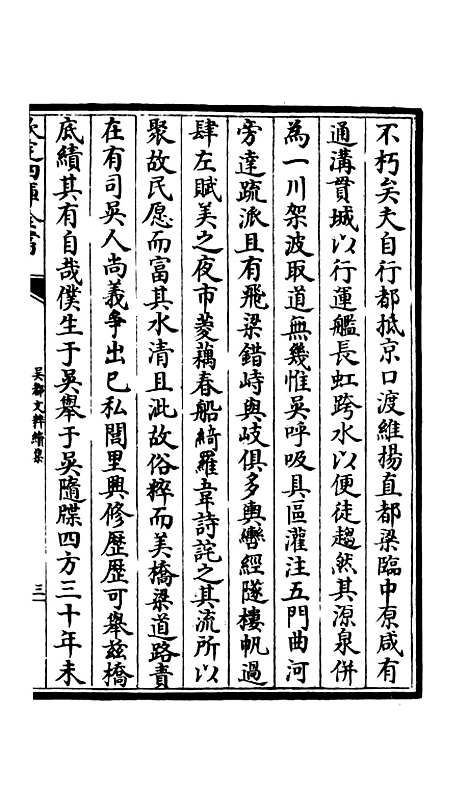 不朽矣夫自行都抵京口渡維揚直都梁臨中原咸有
通溝貫城以行運艦長虹跨水以便徒趨然其源泉併
為一川架波取道無幾惟吳呼吸具區灌注五門曲河
旁達疏派且有飛梁錯峙與岐俱多輿轡經隧樓帆過
肆左賦美之夜市菱藕春船綺羅韋詩詫之其流所以
聚故民愿而富其水清且泚故俗粹而美橋梁道路責
在有司吳人尚義爭出已私閭里興修歷歷可舉茲橋
底績其有自哉僕生于吳舉于吳隨牒四方三十年未
四庫全書
吳都文粹續集
三